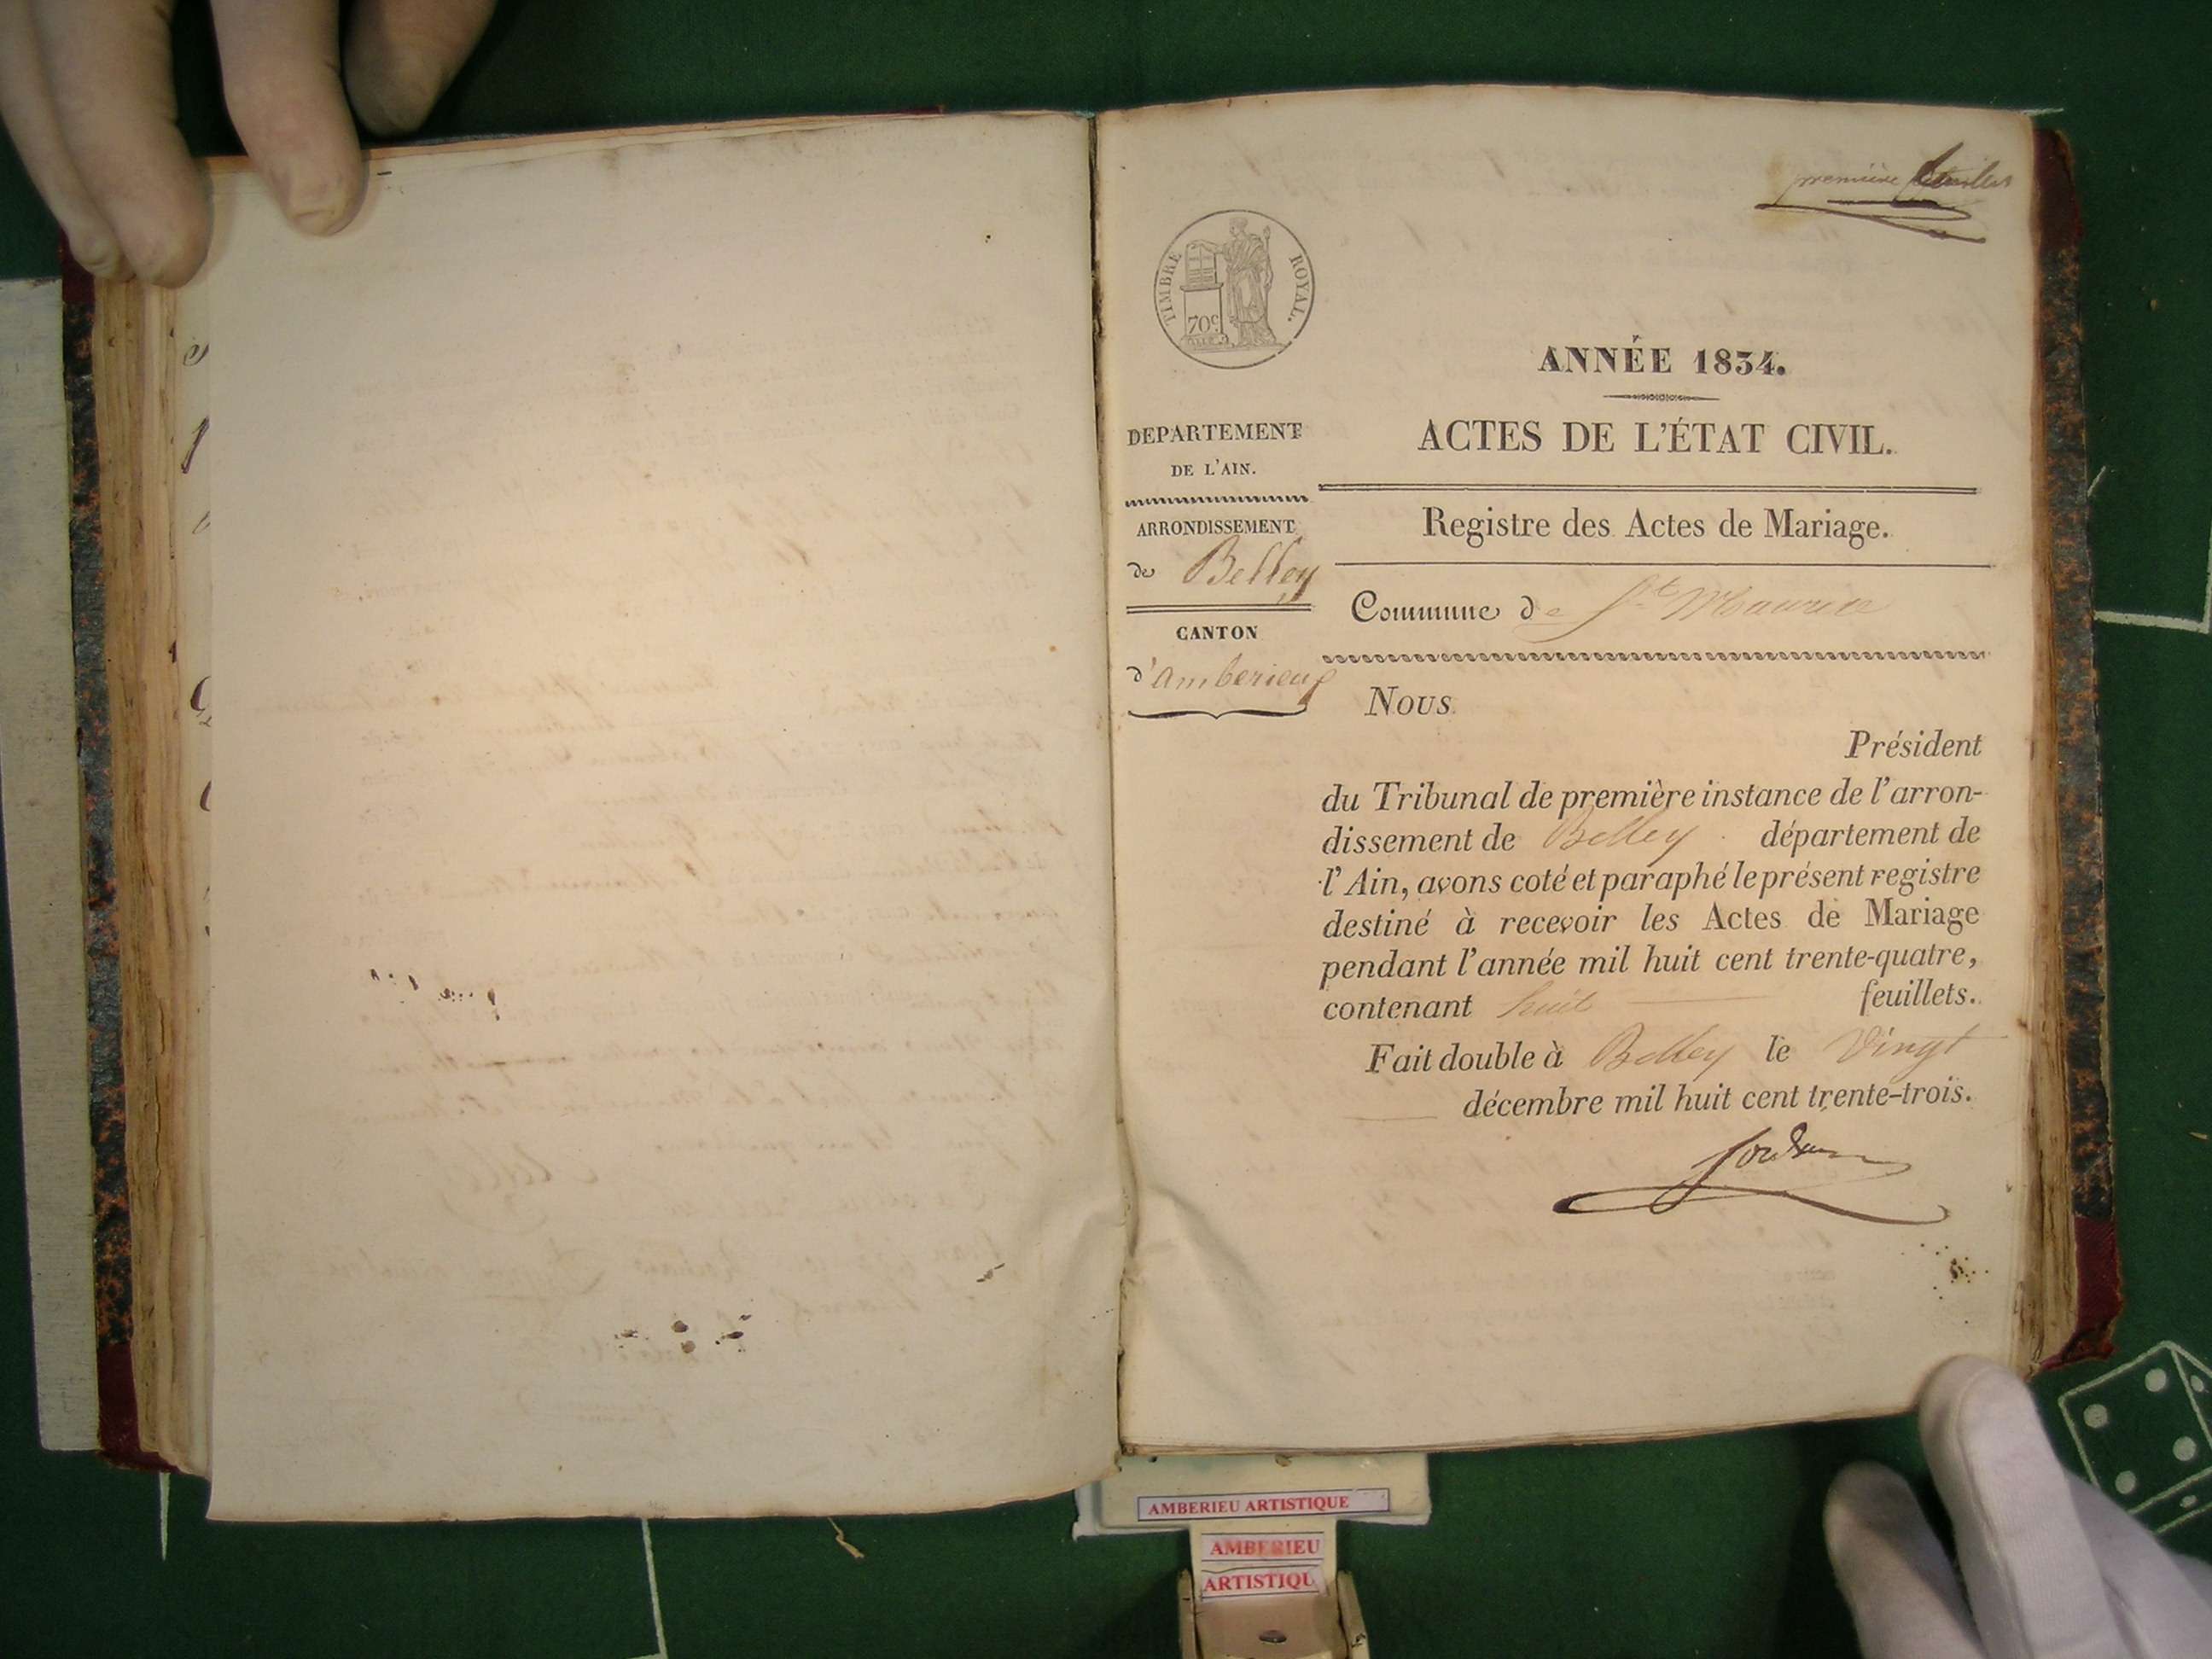 première feuillet
TIMBRE ROYAL.
70c
ANNÉE 1834.
ACTES DE L'ÉTAT CIVIL.
DEPARTEMENT
DE L'AIN.
ARRONDISSEMENT
de Belley
CANTON
d'amberieux
Registre des Actes de Mariage.
Commune de St Maurice
Nous
Président
du Tribunal de première instance de l'arron-
dissement de Belley département de
l'Ain, avons coté et paraphé le présent registre
destiné à recevoir les Actes de Mariage
pendant l'année mil huit cent trente-quatre,
contenant huit feuillets.
Fait double à Belley le Vingt
décembre mil huit cent trente-trois.
AMBERIEU ARTISTIQUE
AMBERIEU
ARTISTIQU